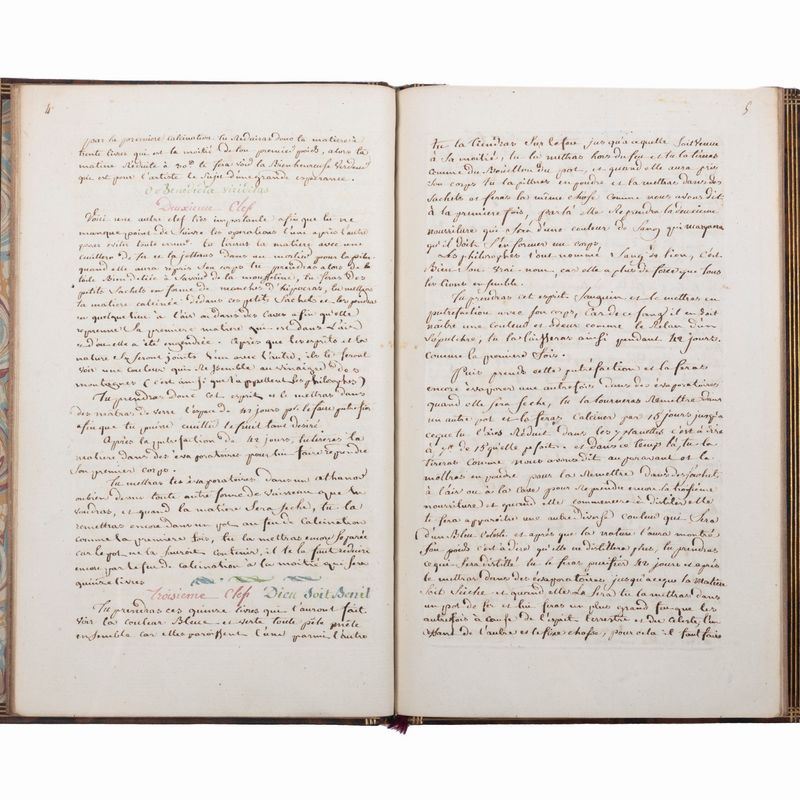 4
pour la premiere calcination. tu Reduiras donc la matiere à
trente livres qui est la moitié de ton premier poids, alors la
matiere Réduite à 30.# te fera voir la Bienheureuse Verdeur
qui est pour l'artiste le Sujet d'une grande esperance.
O Benedicta viriditas
Deuxieme Clef
Voici une autre clef tres importante afin que tu ne
manque point de Suivre les operations l'une après l'autre
pour tu tireras la matiere avec une
cuillere de fer et la jettant dans un mortier pour la piler
quand elle aura repris Son corps tu prendras alors de la
toile Benedicte à Savoir de la mousseline, tu feras des
petits Sachets en forme de manches d'hipocras, tu mettras
ta matiere calcinée dedans ces petits Sachets et les pendras
en quelque lieu à l'air ou dans des caves afin qu'elle
reprenne la premiere matiere qui est dans l'air
d'ou elle a été engendrée. Après que les esprits et la
nature Se Seront joints l'un avec l'autre, ils te feront
voir une couleur qui Ressemble au vinaigre des
montagnes (c'est ainsi que l'appellent les philosophes)
Tu prendras donc cet esprit et le mettras dans
des matras de verre l'espace de 42 jours pour le faire putrefier
afin que tu puisse cueillir le fruit tant desiré.
Après la putrefaction de 42 jours, tu tireras ta
matiere dans des évaporatoires pour lui faire reprendre
Son premier corps.
Tu mettras les évaporatoires dans un athanor
ou bien dans toute autre forme de vaisseau que tu
voudras, et quand la matiere Sera Seche, tu la
remettras encore dans un pot au feu de calcination
comme la premiere fois, tu la mettras encore Separée
car le pot ne la Sauroit contenir, il te la faut reduire
encore par le feu de calcination à la moitié qui Sera
quinze livres
Troisieme Clef Dieu Soit Benit
Tu prendras ces quinze livres qui t'auront fait
voir la couleur Bleue et verte toute pêle mêle
ensemble car elles paroissent l'une parmi l'autre
5
tu la tiendras Sur le feu jusqu'à ce quelle Soit venue
à Sa moitié, tu la mettras hors du feu et tu la tireras
comme du Bouillon du pot, et quand elle aura pris
Son corps tu la pilleras en poudre et la mettras dans des
Sachets et feras la même chose comme nous avons dit
à la premiere fois, par là elle Reprendra la deuxieme
nourriture qui Sera d'une couleur de Sang qui marquera
qu'il doit S'en former un corps.
Les philosophes l'ont nommé Sang du lion, c'est
Bien Son vrai nom, car elle a plus de force que tous
les lions ensemble.
Tu prendras cet esprit Sanguin et le mettras en
putrefaction avec Son corps, car de ce Sang il en doit
naître une couleur et odeur comme le Relan d'un
Sepulchre, tu la laisseras ainsi pendant 42 jours
comme la premiere fois.
Puis prends cette putréfaction et la feras
encore évaporer une autre fois dans des évaporatoires
quand elle Sera Seche, tu la tourneras Remettre dans
un autre pot et la feras calciner par 15 jours jusqu'à
ce que tu l'aies Réduite dans les 7 planettes c'est à dire
à 7.# de 15 qu'elle pesoit et dans ce temps là, tu la
tireras comme nous avons dit auparavant et la
mettras en poudre pour la Remettre dans des Sachets
à l'air ou à la cave pour Reprendre encore la troisieme
nourriture et quand elle commencera à distiller elle
te fera apparoître une autre diverse couleur qui Sera
d'un Bleu Celeste et après que la nature t'aura montré
Son poids c'est à dire qu'elle ne distillera plus, tu prendras
ce qui Sera distillé tu le feras putrefier 42 jours et après
le mettras dans des évaporatoires, jusqu'à ce que ta Matiere
Soit Seiche et quand elle le Sera tu la mettras dans
un pot de fer et lui feras un plus grand feu que les
autrefois à cause de l'esprit terrestre et du celeste, l'un
de l'autre est le fixe chassé, pour cela il faut faire